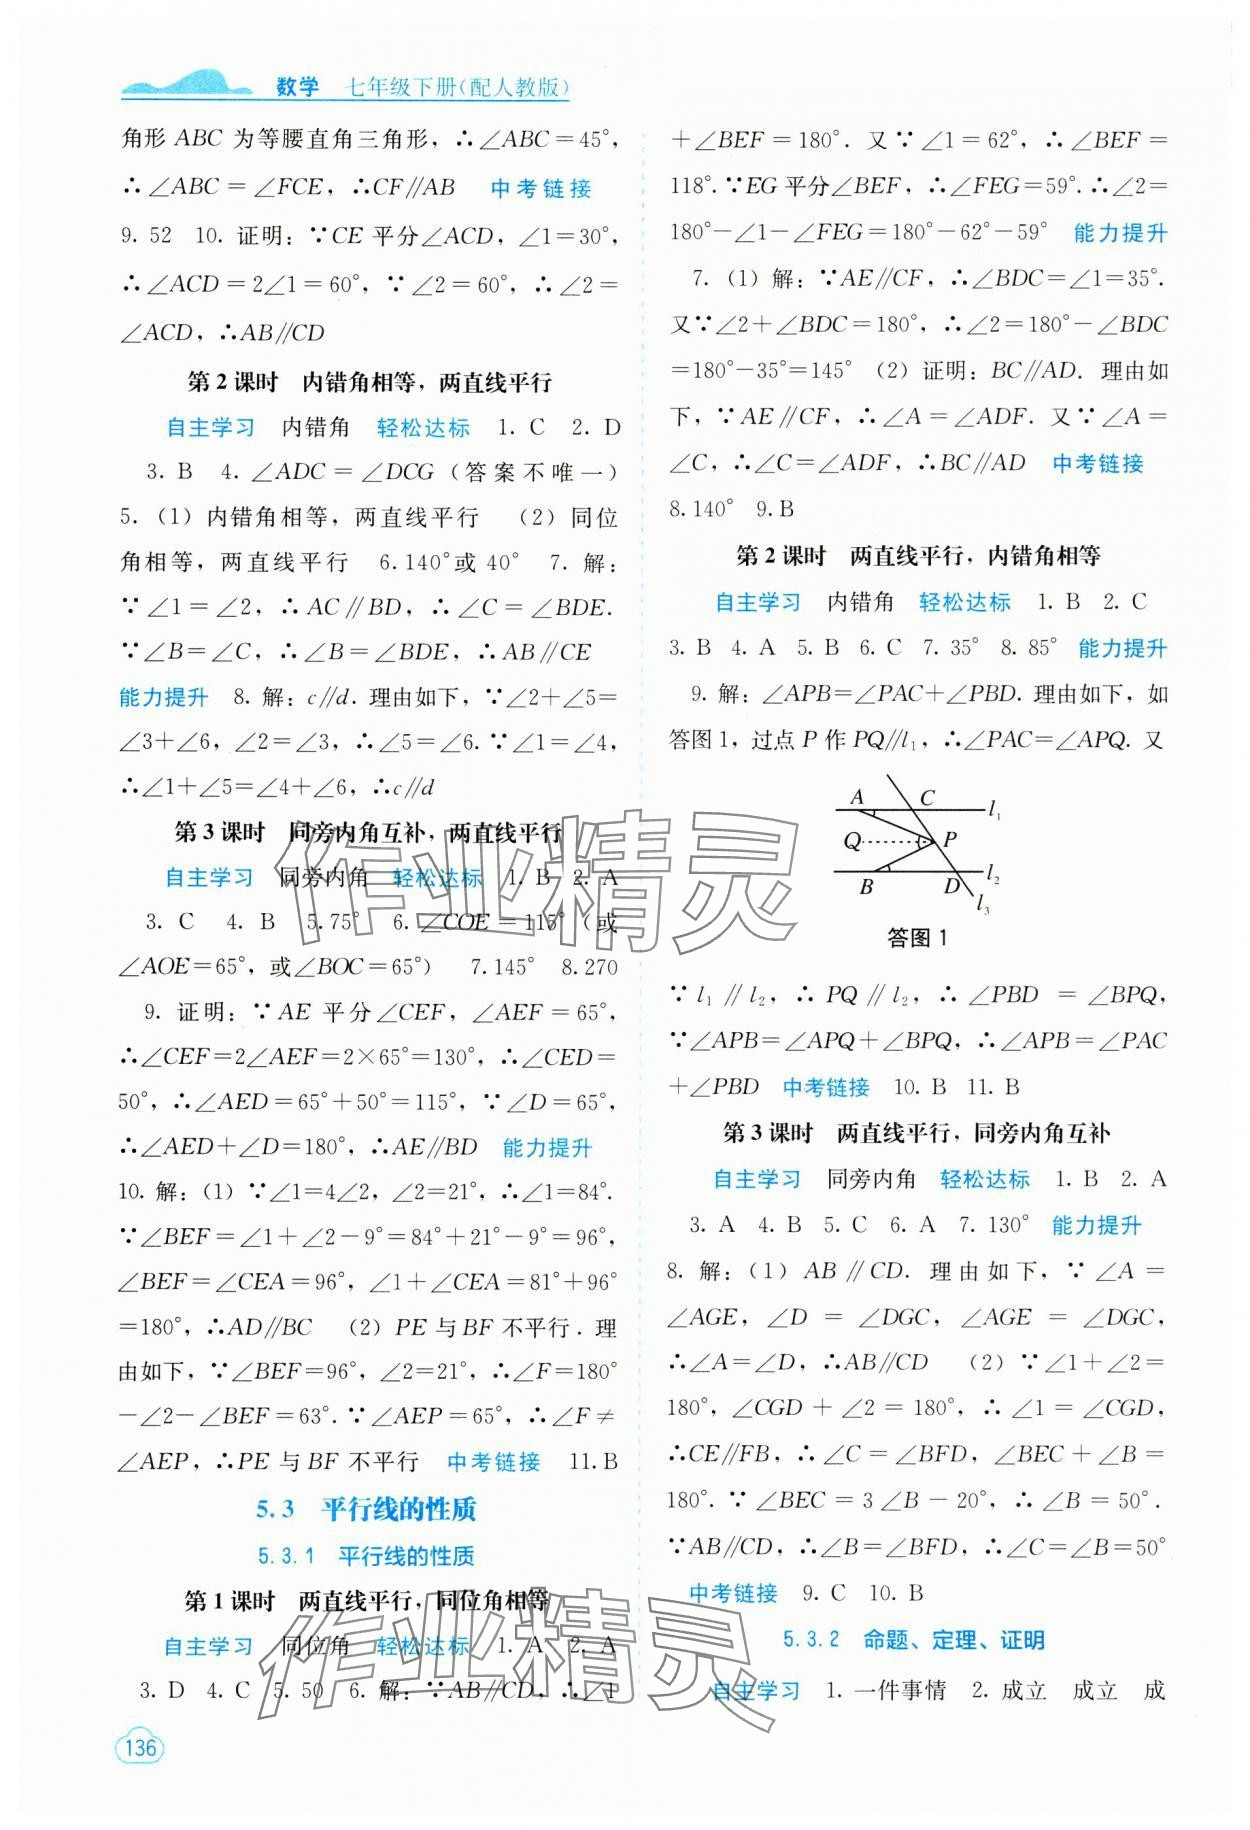 数学 七年级下册(配人教版)
角形 ABC 为等腰直角三角形，∴∠ABC=45°，
∴∠ABC=∠FCE，∴CF∥AB 中考链接
9. 52 10. 证明：∵CE 平分∠ACD，∠1=30°，
∴∠ACD=2∠1=60°，∵∠2=60°，∴∠2=
∠ACD，∴AB∥CD
第 2 课时 内错角相等，两直线平行
自主学习 内错角 轻松达标 1. C 2. D
3. B 4. ∠ADC=∠DCG（答案不唯一）
5.（1）内错角相等，两直线平行 （2）同位
角相等，两直线平行 6.140°或 40° 7. 解：
∵∠1=∠2，∴AC∥BD，∴∠C=∠BDE.
∵∠B=∠C，∴∠B=∠BDE，∴AB∥CE
能力提升 8. 解：c∥d. 理由如下，∵∠2+∠5=
∠3+∠6，∠2=∠3，∴∠5=∠6.∵∠1=∠4，
∴∠1+∠5=∠4+∠6，∴c∥d
第 3 课时 同旁内角互补，两直线平行
自主学习 同旁内角 轻松达标 1. B 2. A
3. C 4. B 5.75° 6. ∠COE=115°（或
∠AOE=65°，或∠BOC=65°） 7.145° 8.270
9. 证明：∵AE 平分∠CEF，∠AEF=65°，
∴∠CEF=2∠AEF=2×65°=130°，∴∠CED=
50°，∴∠AED=65°+50°=115°，∵∠D=65°，
∴∠AED+∠D=180°，∴AE∥BD 能力提升
10. 解：(1) ∵∠1=4∠2，∠2=21°，∴∠1=84°.
∵∠BEF=∠1+∠2-9°=84°+21°-9°=96°，
∠BEF=∠CEA=96°，∠1+∠CEA=81°+96°
=180°，∴AD∥BC （2）PE 与 BF 不平行. 理
由如下，∵∠BEF=96°，∠2=21°，∴∠F=180°
-∠2-∠BEF=63°.∵∠AEP=65°，∴∠F≠
∠AEP，∴PE 与 BF 不平行 中考链接 11. B
5.3 平行线的性质
5.3.1 平行线的性质
第 1 课时 两直线平行，同位角相等
自主学习 同位角 轻松达标 1. A 2. A
3. D 4. C 5. 50 6. 解：∵AB∥CD，∴∠1
136
+∠BEF=180°. 又∵∠1=62°，∴∠BEF=
118°.∵EG 平分∠BEF，∴∠FEG=59°.∴∠2=
180°-∠1-∠FEG=180°-62°-59° 能力提升
7.（1）解：∵AE∥CF，∴∠BDC=∠1=35°.
又∵∠2+∠BDC=180°，∴∠2=180°-∠BDC
=180°-35°=145°（2）证明：BC∥AD. 理由如
下，∵AE∥CF，∴∠A=∠ADF. 又∵∠A=
∠C，∴∠C=∠ADF，∴BC∥AD 中考链接
8.140° 9. B
第 2 课时 两直线平行，内错角相等
自主学习 内错角 轻松达标 1. B 2. C
3. B 4. A 5. B 6. C 7. 35° 8. 85° 能力提升
9. 解：∠APB=∠PAC+∠PBD. 理由如下，如
答图1，过点 P 作 PQ∥l₁，∴∠PAC=∠APQ. 又
A C l₁
Q P
B D l₂
l₃
答图 1
∵ l₁∥l₂，∴ PQ∥l₂，∴∠PBD=∠BPQ，
∵∠APB=∠APQ+∠BPQ，∴∠APB=∠PAC
+∠PBD 中考链接 10. B 11. B
第 3 课时 两直线平行，同旁内角互补
自主学习 同旁内角 轻松达标 1. B 2. A
3. A 4. B 5. C 6. A 7. 130° 能力提升
8. 解：（1）AB∥CD. 理由如下，∵∠A=
∠AGE，∠D=∠DGC，∠AGE=∠DGC，
∴∠A=∠D，∴AB∥CD （2）∵∠1+∠2=
180°，∠CGD+∠2=180°，∴∠1=∠CGD，
∴CE∥FB，∴∠C=∠BFD，∠BEC+∠B=
180°.∵∠BEC=3∠B-20°，∴∠B=50°.
∵AB∥CD，∴∠B=∠BFD，∴∠C=∠B=50°
中考链接 9. C 10. B
5.3.2 命题、定理、证明
自主学习 1. 一件事情 2. 成立 成立 成
作业精灵
作业精灵